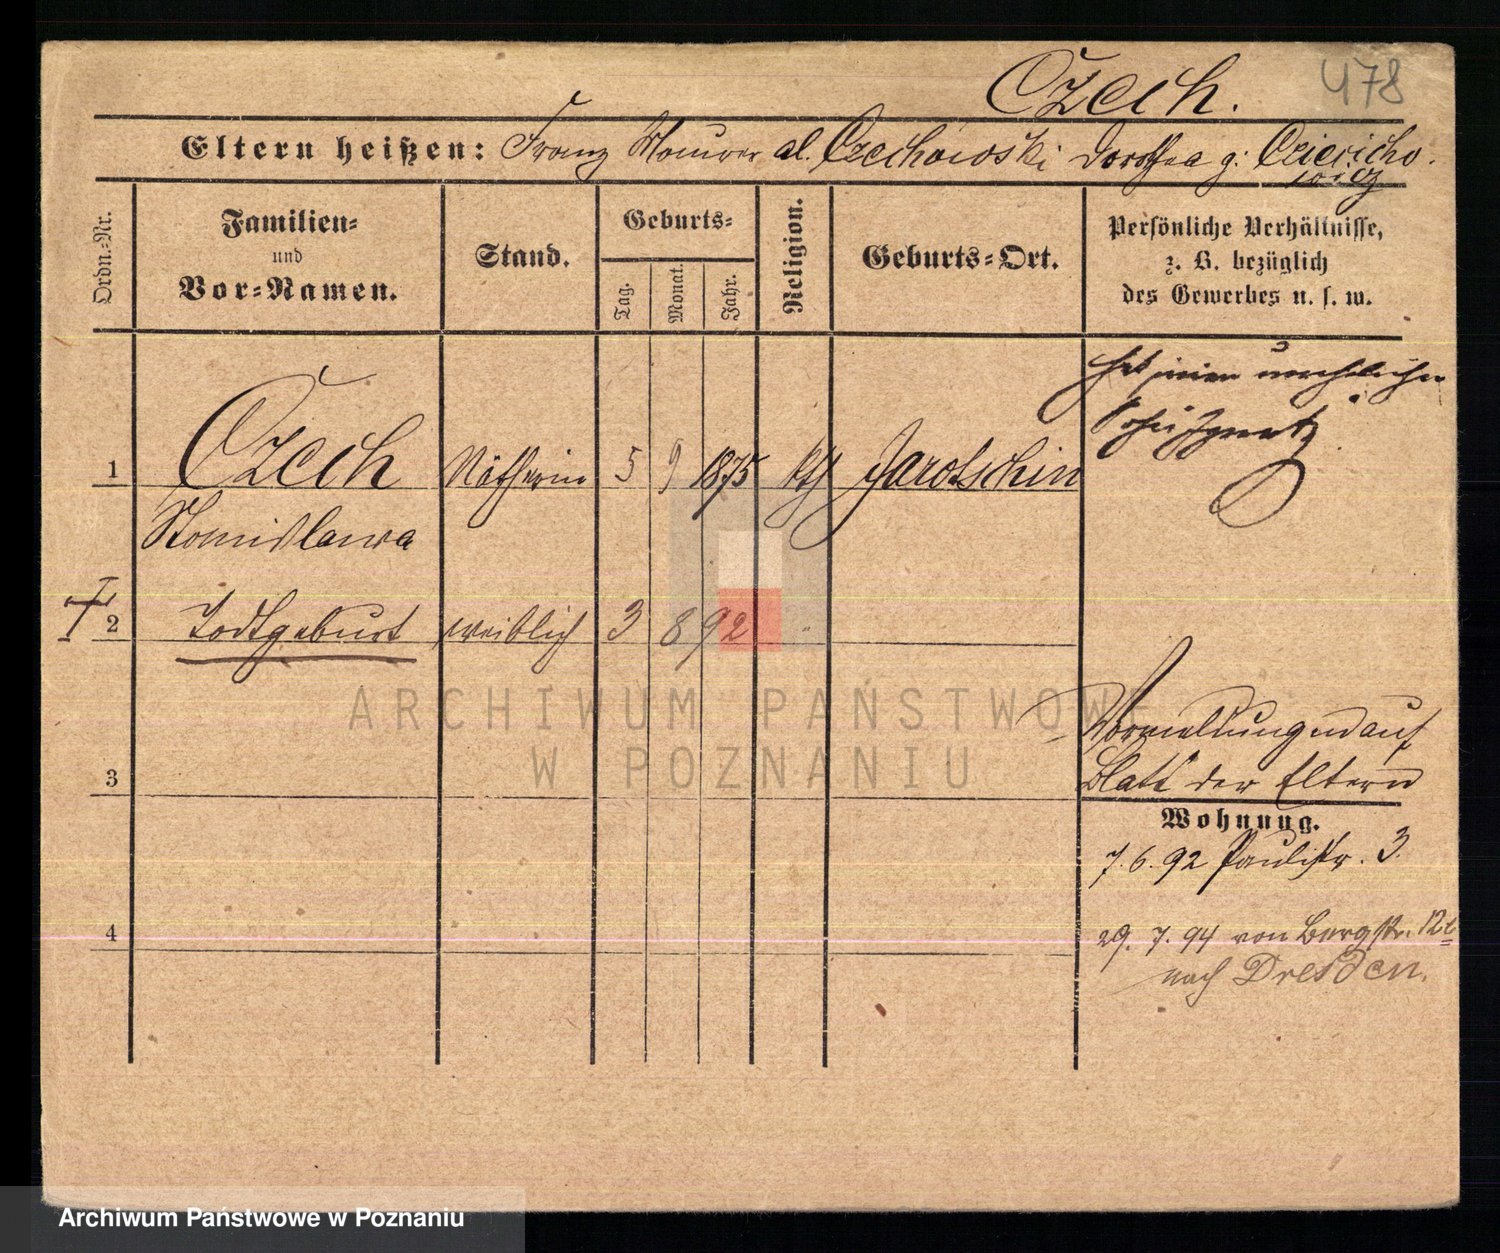 Czech. 478
Eltern heißen: Franz Maurer al. Czechowski Dorothea g: Cziericho
wicz
Ordn.-Nr.
Familien-
und
Vor-Namen.
Stand.
Geburts-
Tag.
Monat.
Jahr.
Religion.
Geburts-Ort.
Persönliche Verhältnisse,
z. B. bezüglich
des Gewerbes u. s. w.
1 Czech Nätherin 5 9 1875 kth Jarotschin
Stanislawa
hat einen unehelichen
Sohn Ignatz
2 Todtgeburt weiblich 3 8 92 "
3
Vormeldungen auf
Blatt der Eltern
Wohnung.
7. 6. 92 Paulistr. 3.
4
29. 7. 94 von Bergstr. 12b
nach Dresden.
ARCHIWUM PAŃSTWOWE
W POZNANIU
Archiwum Państwowe w Poznaniu